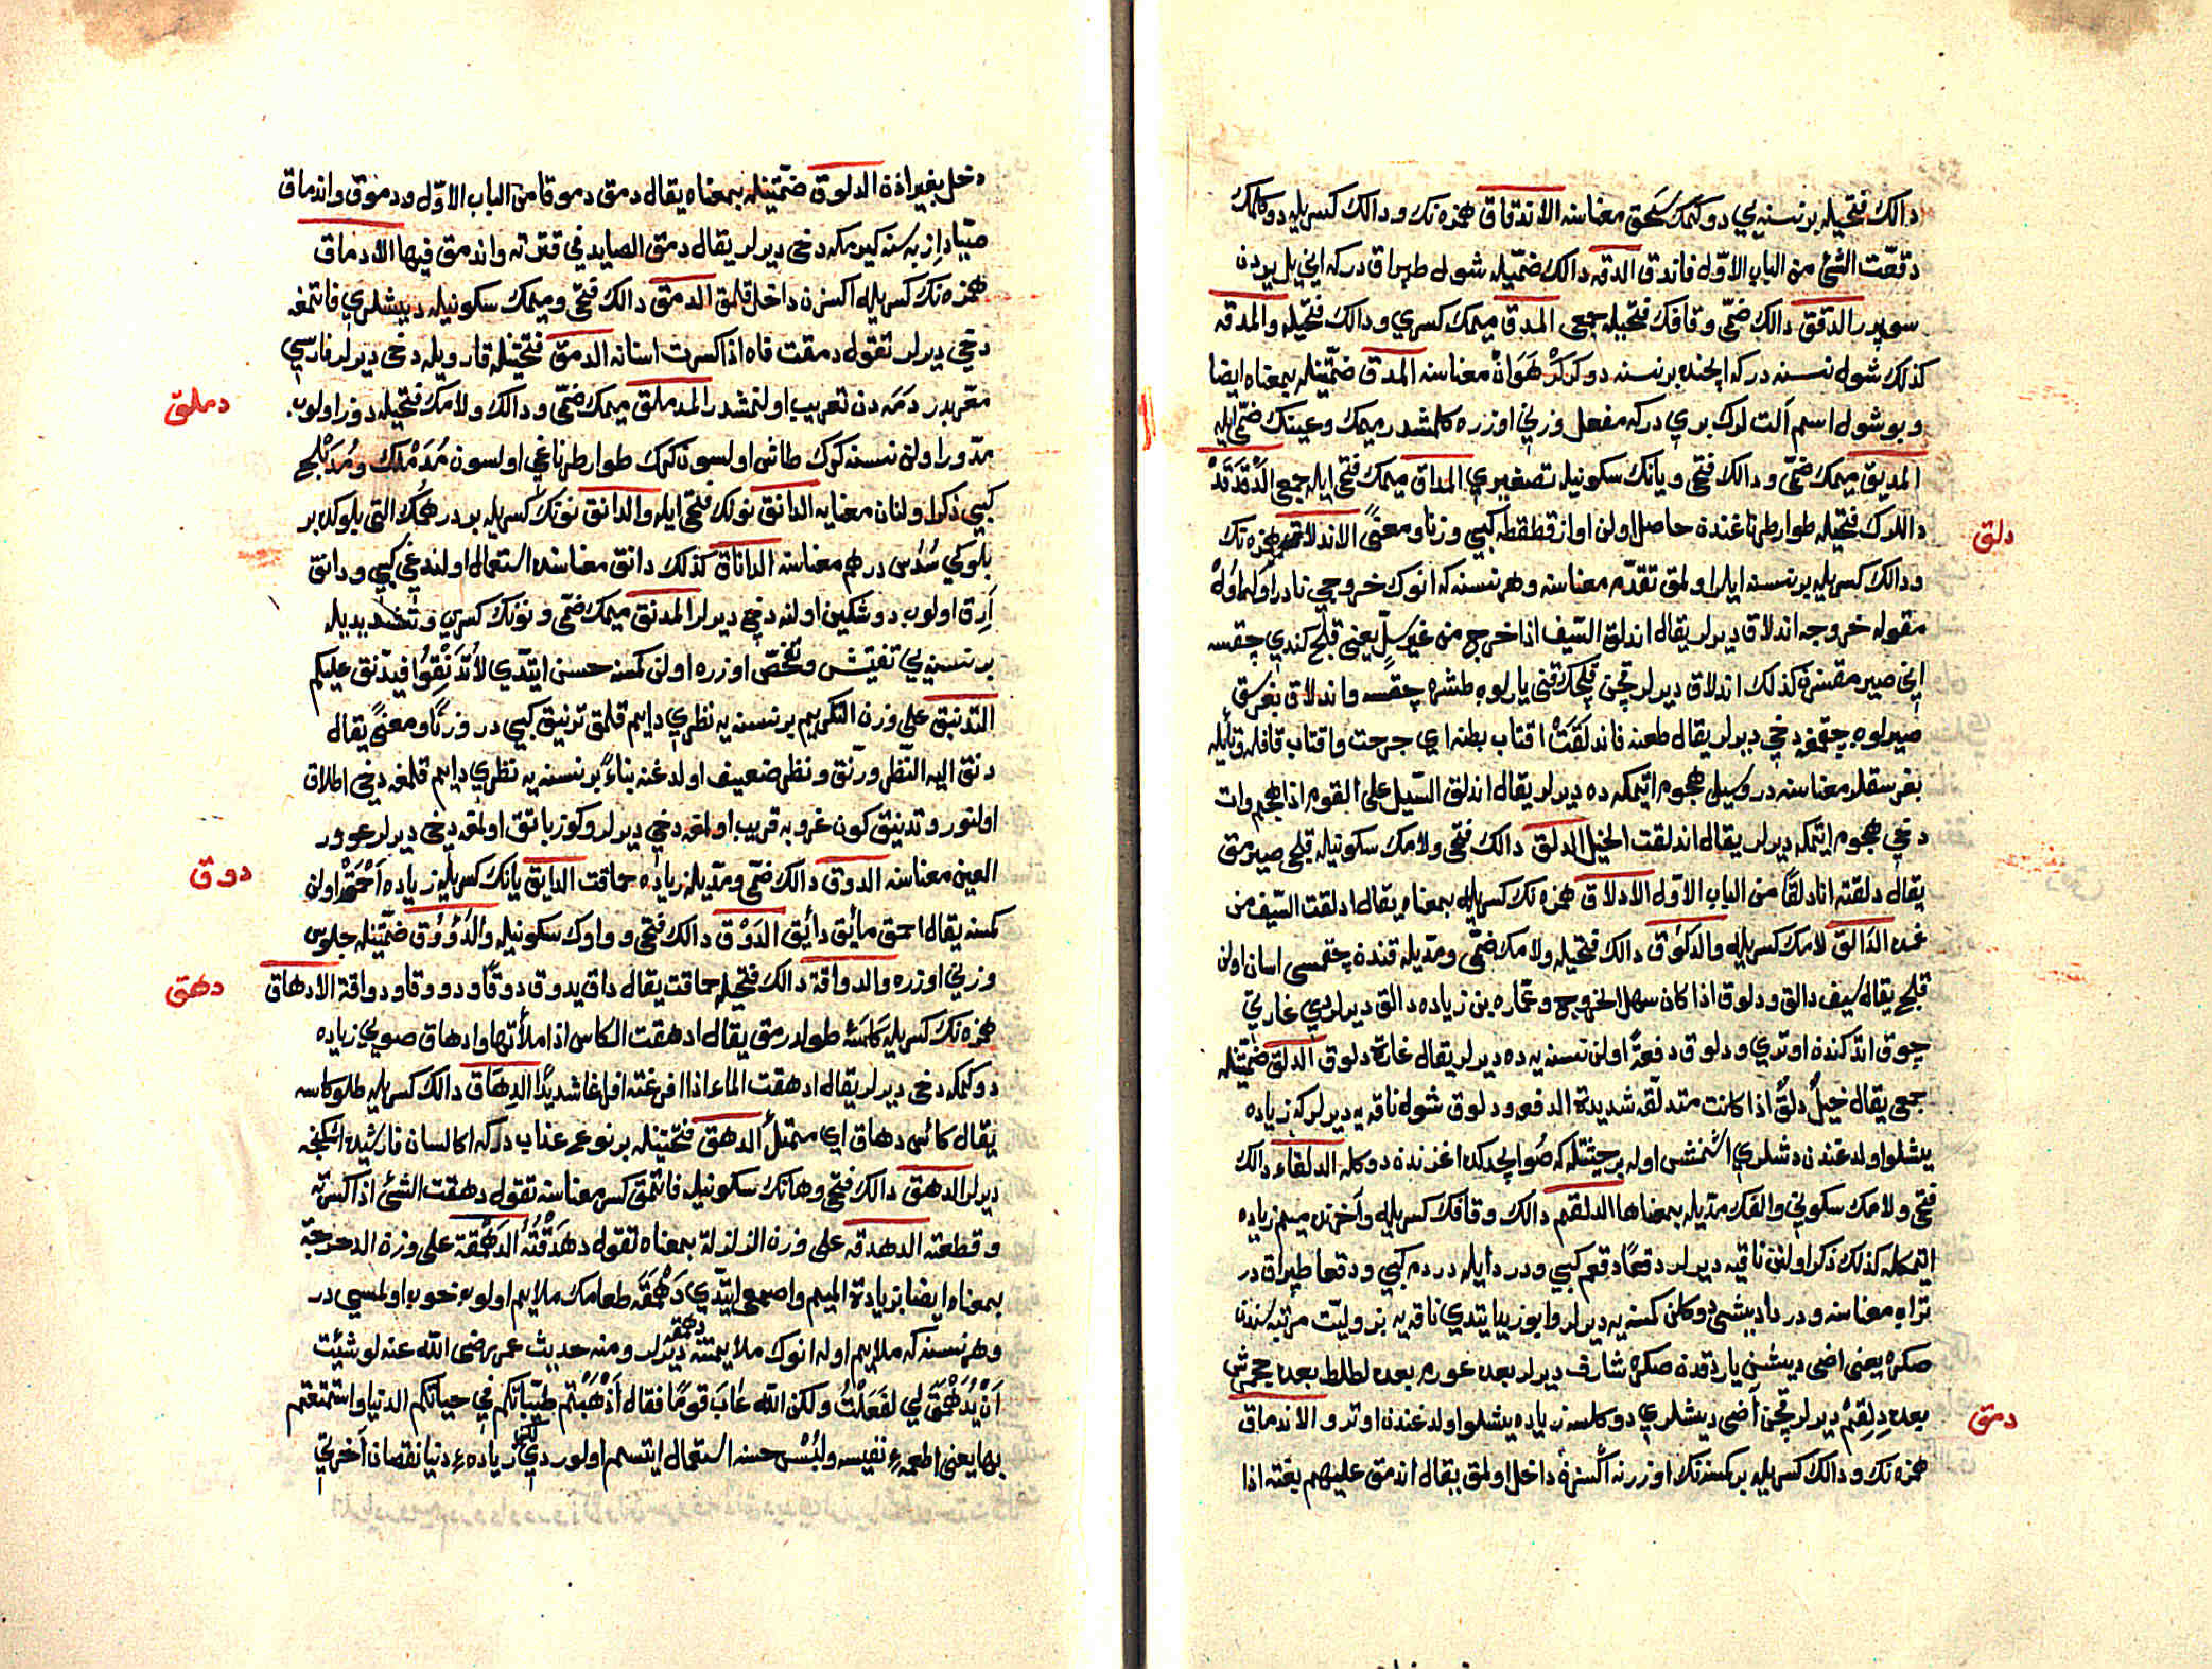 دالك فتحيله برنسنه يي دوكمك سحق معناسنه الاندقاق همزه نك ودالك كسريله دوكلمك
دققت الشئ من الباب الاول فاندق الدقه دالك ضميله شول طپراق دركه انى يل يردن
سوپرر الدقق دالك ضمى وقافك فتحيله جمعى المدق ميمك كسرى ودالك فتحيله والمدقه
كذلك شول نسنه دركه انجنده برنسنه دوكرلر هوان معناسنه المدق ضمتينله بمعناه ايضا
وبو شول اسم آلت لرك بري دركه مفعل وزنى اوزره كلمشدر ميمك وعينك ضمى ايله
المديق ميمك ضمى ودالك فتحى ويانك سكونيله تصغيري المداق ميمك فتحى ايله جمعى الدقدقه
دلق
داللرك فتحيله طوار طرناغندن حاصل اولن اواز قطقطه كبى وزنا ومعنىً الاندلاق همزه نك
ودالك كسريله برنسنه ايلرو اولمق تقدم معناسنه وهر نسنه كه انوك خروجى نادر اولسه اول
مقوله خروجه اندلاق ديرلر يقال اندلق السيف اذا خرج من غير سل يعنى قلج كندي چقسه
انى صيرمقسزن كذلك اندلاق ديرلر قچن قلجك قنى ياريلوب طشره چقسه واندلاق بغرسق
صيريلوب چقمغه دخى ديرلر يقال طعنه فاندلقت اقتاب بطنه اي خرجت واقتاب قافله وتايله
بغرسقلر معناسنه در وسيل هجوم ايتمكه ده ديرلر يقال اندلق السيل على القوم اذا هجم وات
دخى هجوم ايتمكه ديرلر يقال اندلقت الخيل الدلق دالك فتحى ولامك سكونيله قلج صيرمق
يقال دلقته انا دلقا من الباب الاول الادلاق همزه نك كسريله بمعناه يقال ادلقت السيف من
غمده الدالق لامك كسريله والدلوق دالك فتحيله ولامك ضمى ومديله قنندن چقمسى اسان اولن
قلج يقال سيف دالق ودلوق اذا كان سهل الخروج وعماره بن زياده دالق ديرلردي غارتى
چوق اتدكندن اوتري ودلوق دفعه اولن نسنه يه ده ديرلر يقال غارة دلوق الدلق ضمتينله
جمعى يقال خيل دلق اذا كانت متدلقه شديدة الدفعه ودلوق شول ناقه يه ديرلركه زياده
يشلو اولدغندن دشلري اشنمش اوله بر حيثيتله كه صو ايچدكده اغزندن دوكله الدلقاء دالك
فتحى ولامك سكونى والفك مديله بمعناها الدلقم دالك وقافك كسريله واخرنده ميم زياده
اتمكله كذلك ذكر اولنن ناقيه ديرلر دقعا دقعم كبى ودردا ايله دردم كبى ودقعا طپراق در
تراب معناسنه ودردا ديشى دوكلن كمسنه يه ديرلر وابو زيد ايتدي ناقه يه بزوليت مرتبه سندن
صكره يعنى اضى ديشن ياردقدن صكره شارف ديرلر بعده عوزم بعده لطلط بعده جحمرش
دمق
بعده دلقم ديرلر قچن اضى ديشلري دوكلسه زياده يشلو اولدغندن اوترو الاندماق
همزه نك ودالك كسريله بركسنه نك اوزرنه اكسزن داخل اولمق يقال اندمق عليهم بغتة اذا
دخل بغير اذن الدلوق ضمتينله بمعناه يقال دمق دموقا من الباب الاول ودموق واندماق
صياد ازبه سنه كيرمكه دخى ديرلر يقال دمق الصايد فى قترته واندمق فيها الادماق
همزه نك كسريله اكسزن داخل قلمق الدمق دالك فتحى وميمك سكونيله ديشلري فاتمغه
دخى ديرلر تقول دمقت فاه اذا كسرت اسنانه الدمق فتحتينله قار ويله دخى ديرلر فارسي
دملق
معربدر دمه دن تعريب اولنمشدر المدملق ميمك ضمى ودالك ولامك فتحيله دوز اولوب
مدور اولن نسنه كرك طاش اولسون كرك طوار طرناغى اولسون مدملك ومدملج
كبي ذكر اولنان معنايه الدانق نونك فتحى ايله والدانق نونك كسريله بر درهمك التى بلوكده بر
بلوكي سدس درهم معناسنه الداناق كذلك دانق معناسنده استعمال اولندغى كبي ودانق
آرق اولوب دوشكين اولنه دخى ديرلر المدنق ميمك ضمى ونونك كسري وتشديديله
برنسنه يي تفتيش وتفحص اوزره اولن كمسنه حسن ايتدي لا تدنقوا فيدنق عليكم
التدنيق على وزن التكريم برنسنه يه نظري دايم قلمق ترنيق كبى در وزنًا ومعنىً يقال
دنق اليه النظر ورنق ونظر ضعيف اولدغنه بناءً برنسنه يه نظري دايم قلمغه دخى اطلاق
اولنور وتدنيق كون غروبه قريب اولمغه دخى ديرلر وكوز باتق اولمغه دخى ديرلر عوور
دوق
العين معناسنه الدوق دالك ضمى ومديله زياده حماقت الدايق يانك كسريله زياده احمق اولن
كمسنه يقال احمق مائق دائق الدوق دالك فتحى وواوك سكونيله والدؤوق ضمتينله جلوس
دهق
وزنى اوزره والدواقة دالك فتحيله حماقت يقال داق يدوق دوقًا ودووقا ودواقة الادهاق
همزه نك كسريله كاسه طولدرمق يقال ادهقت الكاس اذا ملأتها وادهاق صويي زياده
دوكمكه دخى ديرلر يقال ادهقت الماء اذا افرغته افراغا شديدًا الدهاق دالك كسريله طلو كاسه
يقال كأس دهاق اي ممتلئ الدهق فتحتينله برنوعى عذاب دركه اكا لسان فارسيده اشكنجه
ديرلر الدهق دالك فتحى وهانك سكونيله فاتمق كسر معناسنه تقول دهقت الشئ اذا كسرته
وقطعته الدهدقه على وزن الزلزلة بمعناه تقول دهدقته الدهمقة على وزن الدحرجة
بمعناه ايضا بزيادة الميم واصمعى ايتدي دهمقه طعامك ملايم اولوب خوب اولمسي در
وهر نسنه كه ملايم اوله انوك ملايمتنه دهمقه ديرلر ومنه حديث عمر رضى الله عنه لو شئت
ان يدهمق لي لفعلت ولكن الله عاب قومًا فقال اذهبتم طيباتكم في حياتكم الدنيا واستمتعتم
بها يعنى اطعمهء نفيسه ولبس حسنه استعمال ايتسم اولوردي لكن زيادهء دنيا نقصان آخرتى